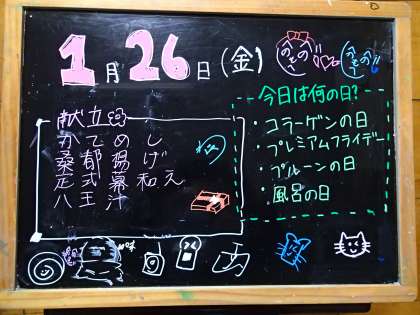 1月26日(金)
献立
かてめし
桑都揚げ
足式幕和え
八王汁
今日は何の日?
・コラーゲンの日
・プレミアムフライデー
・プルーンの日
・風呂の日